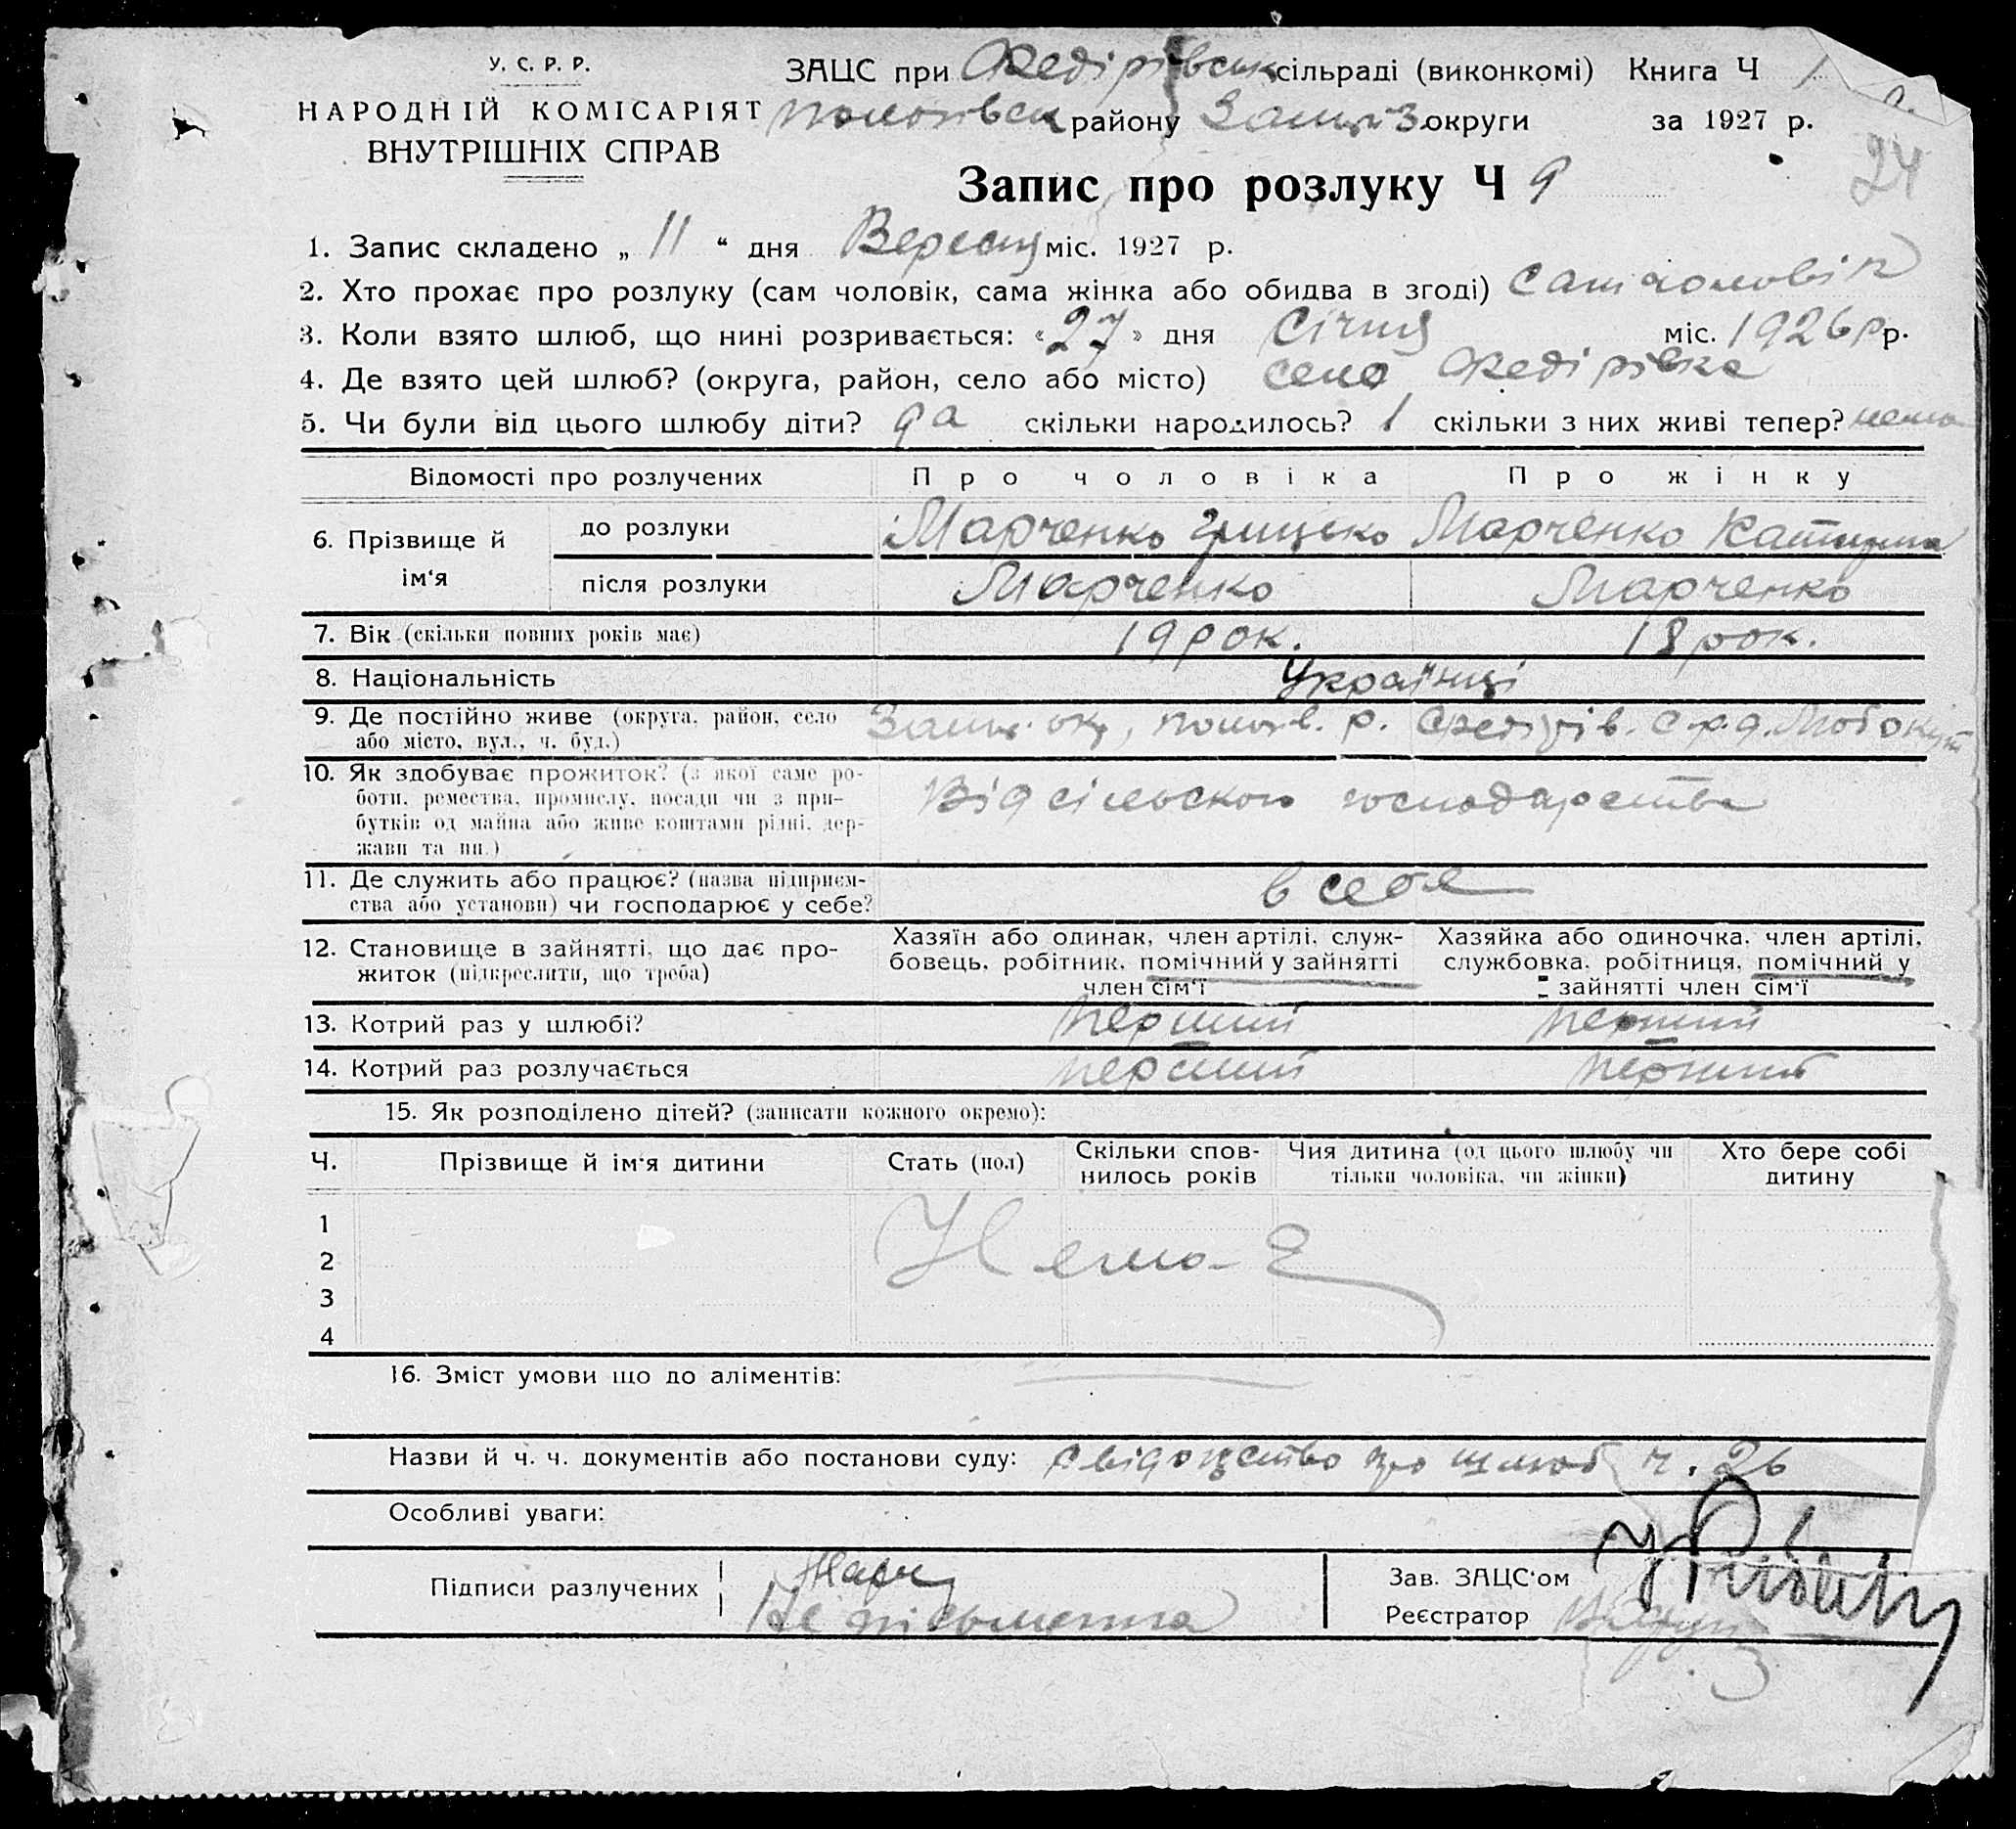 У. С. Р. Р.
НАРОДНІЙ КОМІСАРІЯТ
ВНУТРІШНІХ СПРАВ
ЗАЦС при Федірівськ сільраді (виконкомі) Книга Ч 1
пологівськ району Запоріз. округи за 1927 р.
24
Запис про розлуку Ч 9
1. Запис складено „ 11 “ дня Вересня міс. 1927 р.
2. Хто прохає про розлуку (сам чоловік, сама жінка або обидва в згоді) сам чоловік
3. Коли взято шлюб, що нині розривається: „27“ дня Січня міс. 1926 р р.
4. Де взято цей шлюб? (округа, район, село або місто) село Федірівка
5. Чи були від цього шлюбу діти? да скільки народилось? 1 скільки з них живі тепер? нема
Відомості про розлучених Про чоловіка Про жінку
6. Прізвище й ім‘я
до розлуки Марченко Грицько Марченко Катирина
після розлуки Марченко Марченко
7. Вік (скільки повних років має) 19 рок. 18 рок.
8. Національність Українці
9. Де постійно живе (округа, район, село
або місто, вул., ч. буд.) Запор. окр, полог. р. Федірів. с.р.
10. Як здобуває прожиток? (з якої саме ро-
боти, ремества, промислу, посади чи з при-
бутків од майна або живе коштами рідні, дер-
жави та ин.) Від сільського господарства
11. Де служить або працює? (назва підприєм-
ства або установи) чи господарює у себе? в себе
12. Становище в зайнятті, що дає про-
житок (підкреслити, що треба)
Хазяїн або одинак, член артілі, служ-
бовець, робітник, помічний у зайнятті
член сім‘ї
Хазяйка або одиночка, член артілі,
службовка, робітниця, помічний у
зайнятті член сім‘ї
13. Котрий раз у шлюбі? перший перший
14. Котрий раз розлучається перший перший
15. Як розподілено дітей? (записати кожного окремо):
Ч. Прізвище й ім‘я дитини Стать (пол) Скільки спов-
нилось років Чия дитина (од цього шлюбу чи
тільки чоловіка, чи жінки) Хто бере собі
дитину
1
2 Нема-Є
3
4
16. Зміст умови що до аліментів:
Назви й ч. ч. документів або постанови суду: свідоцство про шлюб ч. 26
Особливі уваги:
Підписи разлучених Марч
Не письменна
Зав. ЗАЦС‘ом
Реєстратор